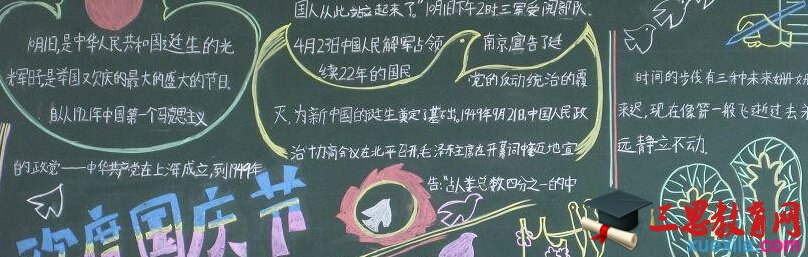 10月1日,是中华人民共和国诞生的光
辉日子是举国欢庆的最大的盛大的节日.
自从1921年中国第一个马克思主义
的政党——中华共产党在上海成立,到1949年
4月23日中国人民解军占领 南京,宣告了延
续22年的国民 党的反动统治的覆
灭,为新中国的诞生奠定了基础.1949年9月21日,中国人民政
治协商会议在北平召开,毛泽东主席在开幕词中宣
告:"占人类总数四分之一的中
国人从此站立起来了."10月1日下午2时三军受阅部队.
欢度国庆节
时间的步伐有三种未来姗姗
来迟,现在像箭一般飞逝过去永
远静立不动.
三思教育网